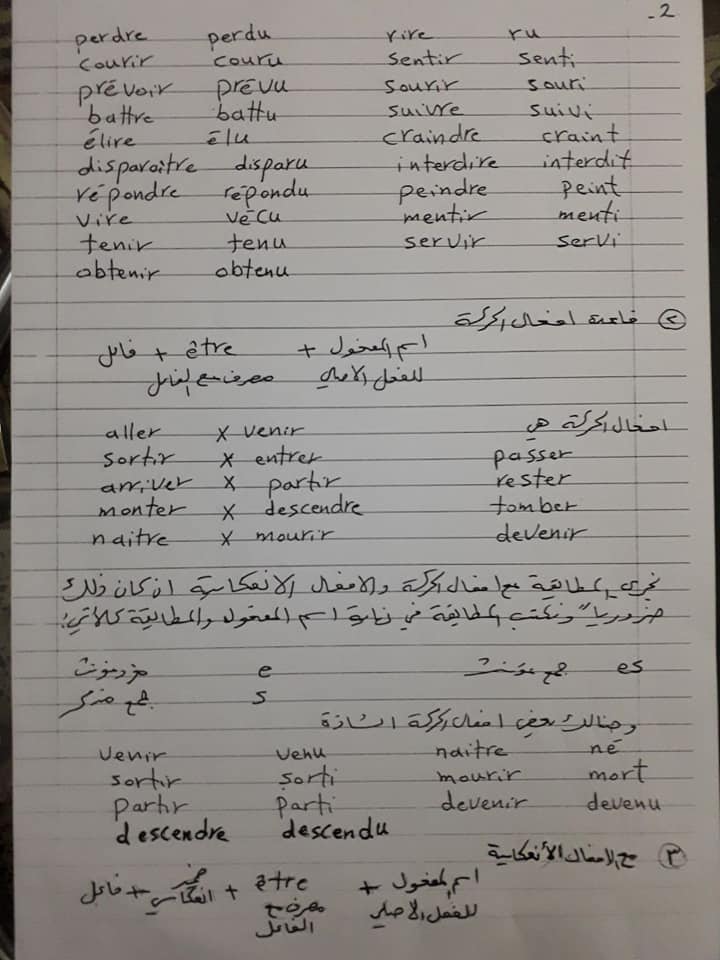 2-
perdre perdu rire ru
courir couru sentir senti
prévoir prévu sourir souri
battre battu suivre suivi
élire élu craindre craint
disparaître disparu interdire interdit
répondre répondu peindre peint
vire vécu mentir menti
tenir tenu servir servi
obtenir obtenu
٢ قاعدة افعال الحركة
اسم المفعول + être + فاعل
للفعل الاصلي مصرف مع الفاعل
افعال الحركة هي
aller x venir
sortir x entrer passer
arriver x partir rester
monter x descendre tomber
naitre x mourir devenir
تجري المطابقة مع افعال الحركة والافعال الانعكاسية ان كان ذلك
ضرورياً ونكتب المطابقة في نهاية اسم المفعول والمطابقة كالآتي:
مفرد مؤنث e جمع مؤنث es
جمع مذكر s
وهنالك بعض افعال الحركة الشاذة
venir venu naitre né
sortir sorti mourir mort
partir parti devenir devenu
descendre descendu
٣ مع الافعال الأنعكاسية
اسم المفعول + être + ضمير انعكاسي + فاعل
للفعل الاصلي مصرف مع
الفاعل